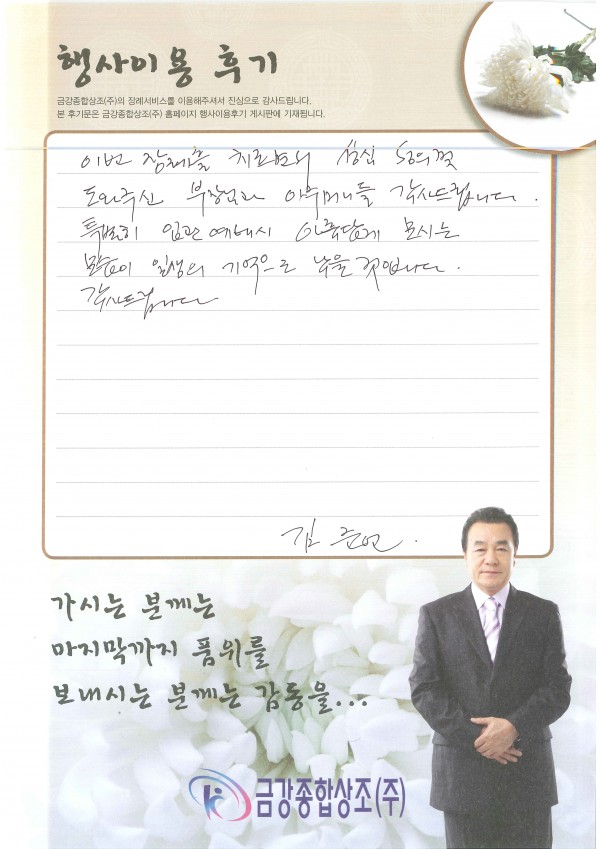 행사이용 후기
금강종합상조(주)의 장례서비스를 이용해주셔서 진심으로 감사드립니다.
본 후기문은 금강종합상조(주) 홈페이지 행사이용후기 게시판에 기재됩니다.
이번 장례를 치르면서 성심 성의껏
도와주신 부장님과 아주머니들 감사드립니다.
특별히 입관예배시 아름답게 모시는
모습이 일생의 기억으로 남을 것입니다.
감사드립니다
김
가시는 분께는
마지막까지 품위를
보내시는 분께는 감동을...
금강종합상조(주)